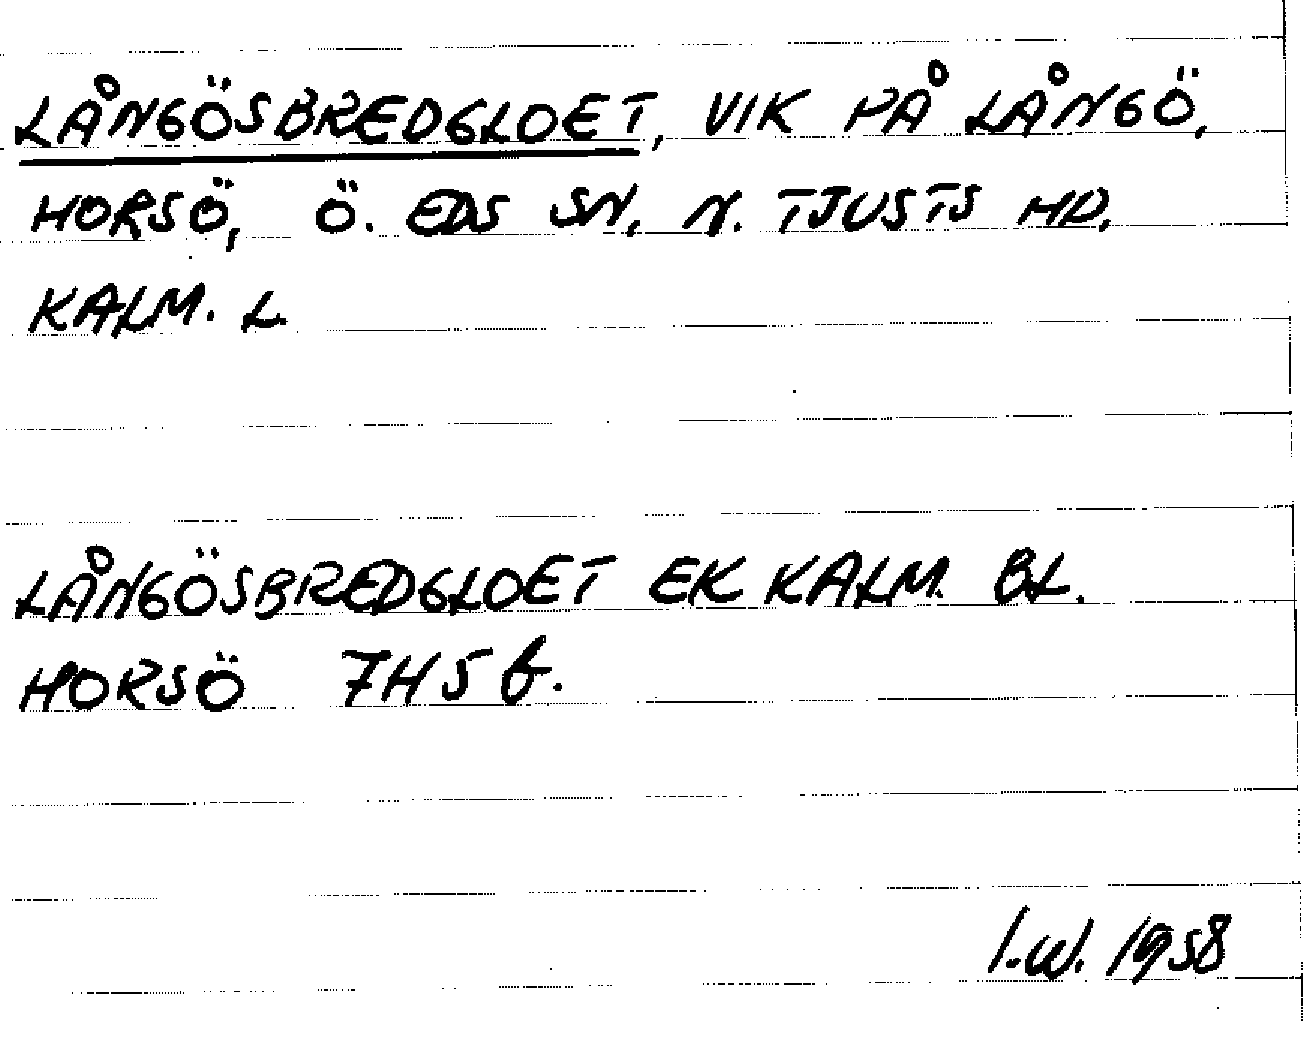 LÅNGÖSBREDGLOET, VIK PÅ LÅNGÖ,
HORSÖ, Ö. EDS SN, N. TJUSTS HD,
KALM. L.
LÅNGÖSBREDGLOET EK KALM. BL.
HORSÖ 7H5f.
I.W. 1958